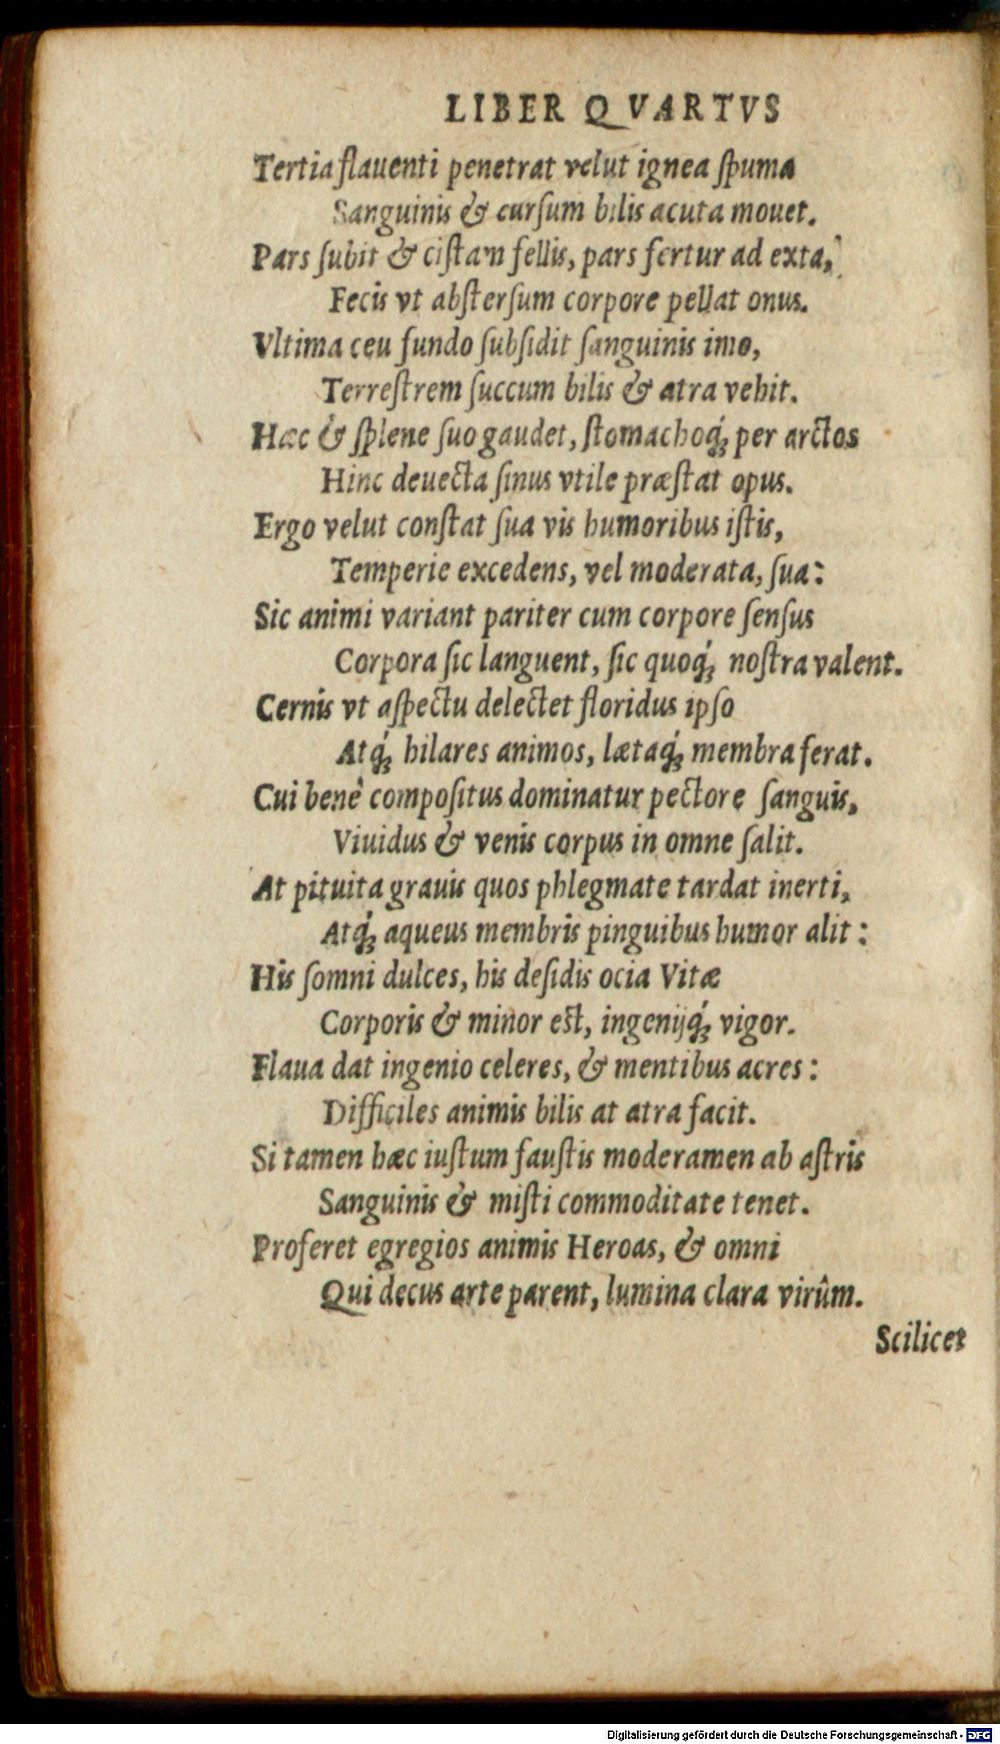 LIBER QVARTVS
Tertia flauenti penetrat velut ignea ſpuma
Sanguinis & curſum bilis acuta mouet.
Pars ſubit & ciſtam fellis, pars fertur ad exta,
Fecis vt abſterſum corpore pellat onus.
Vltima ceu fundo ſubſidit ſanguinis imo,
Terreſtrem ſuccum bilis & atra vehit.
Hæc & ſplene ſuo gaudet, ſtomachoq́; per arctos
Hinc deuecta ſinus vtile præſtat opus.
Ergo velut conſtat ſua vis humoribus iſtis,
Temperie excedens, vel moderata, ſua:
Sic animi variant pariter cum corpore ſenſus
Corpora ſic languent, ſic quoq́; noſtra valent.
Cernis vt aſpectu delectet floridus ipſo
Atq́; hilares animos, lætaq́; membra ferat.
Cui benè compoſitus dominatur pectore ſanguis,
Viuidus & venis corpus in omne ſalit.
At pituita grauis quos phlegmate tardat inerti,
Atq́; aqueus membris pinguibus humor alit:
His ſomni dulces, his deſidis ocia Vitæ
Corporis & minor eſt, ingenijq́; vigor.
Flaua dat ingenio celeres, & mentibus acres:
Difficiles animis bilis at atra facit.
Si tamen hæc iuſtum fauſtis moderamen ab aſtris
Sanguinis & miſti commoditate tenet.
Proferet egregios animis Heroas, & omni
Qui decus arte parent, lumina clara virûm.
Scilicet
Digitalisierung gefördert durch die Deutsche Forschungsgemeinschaft - DFG